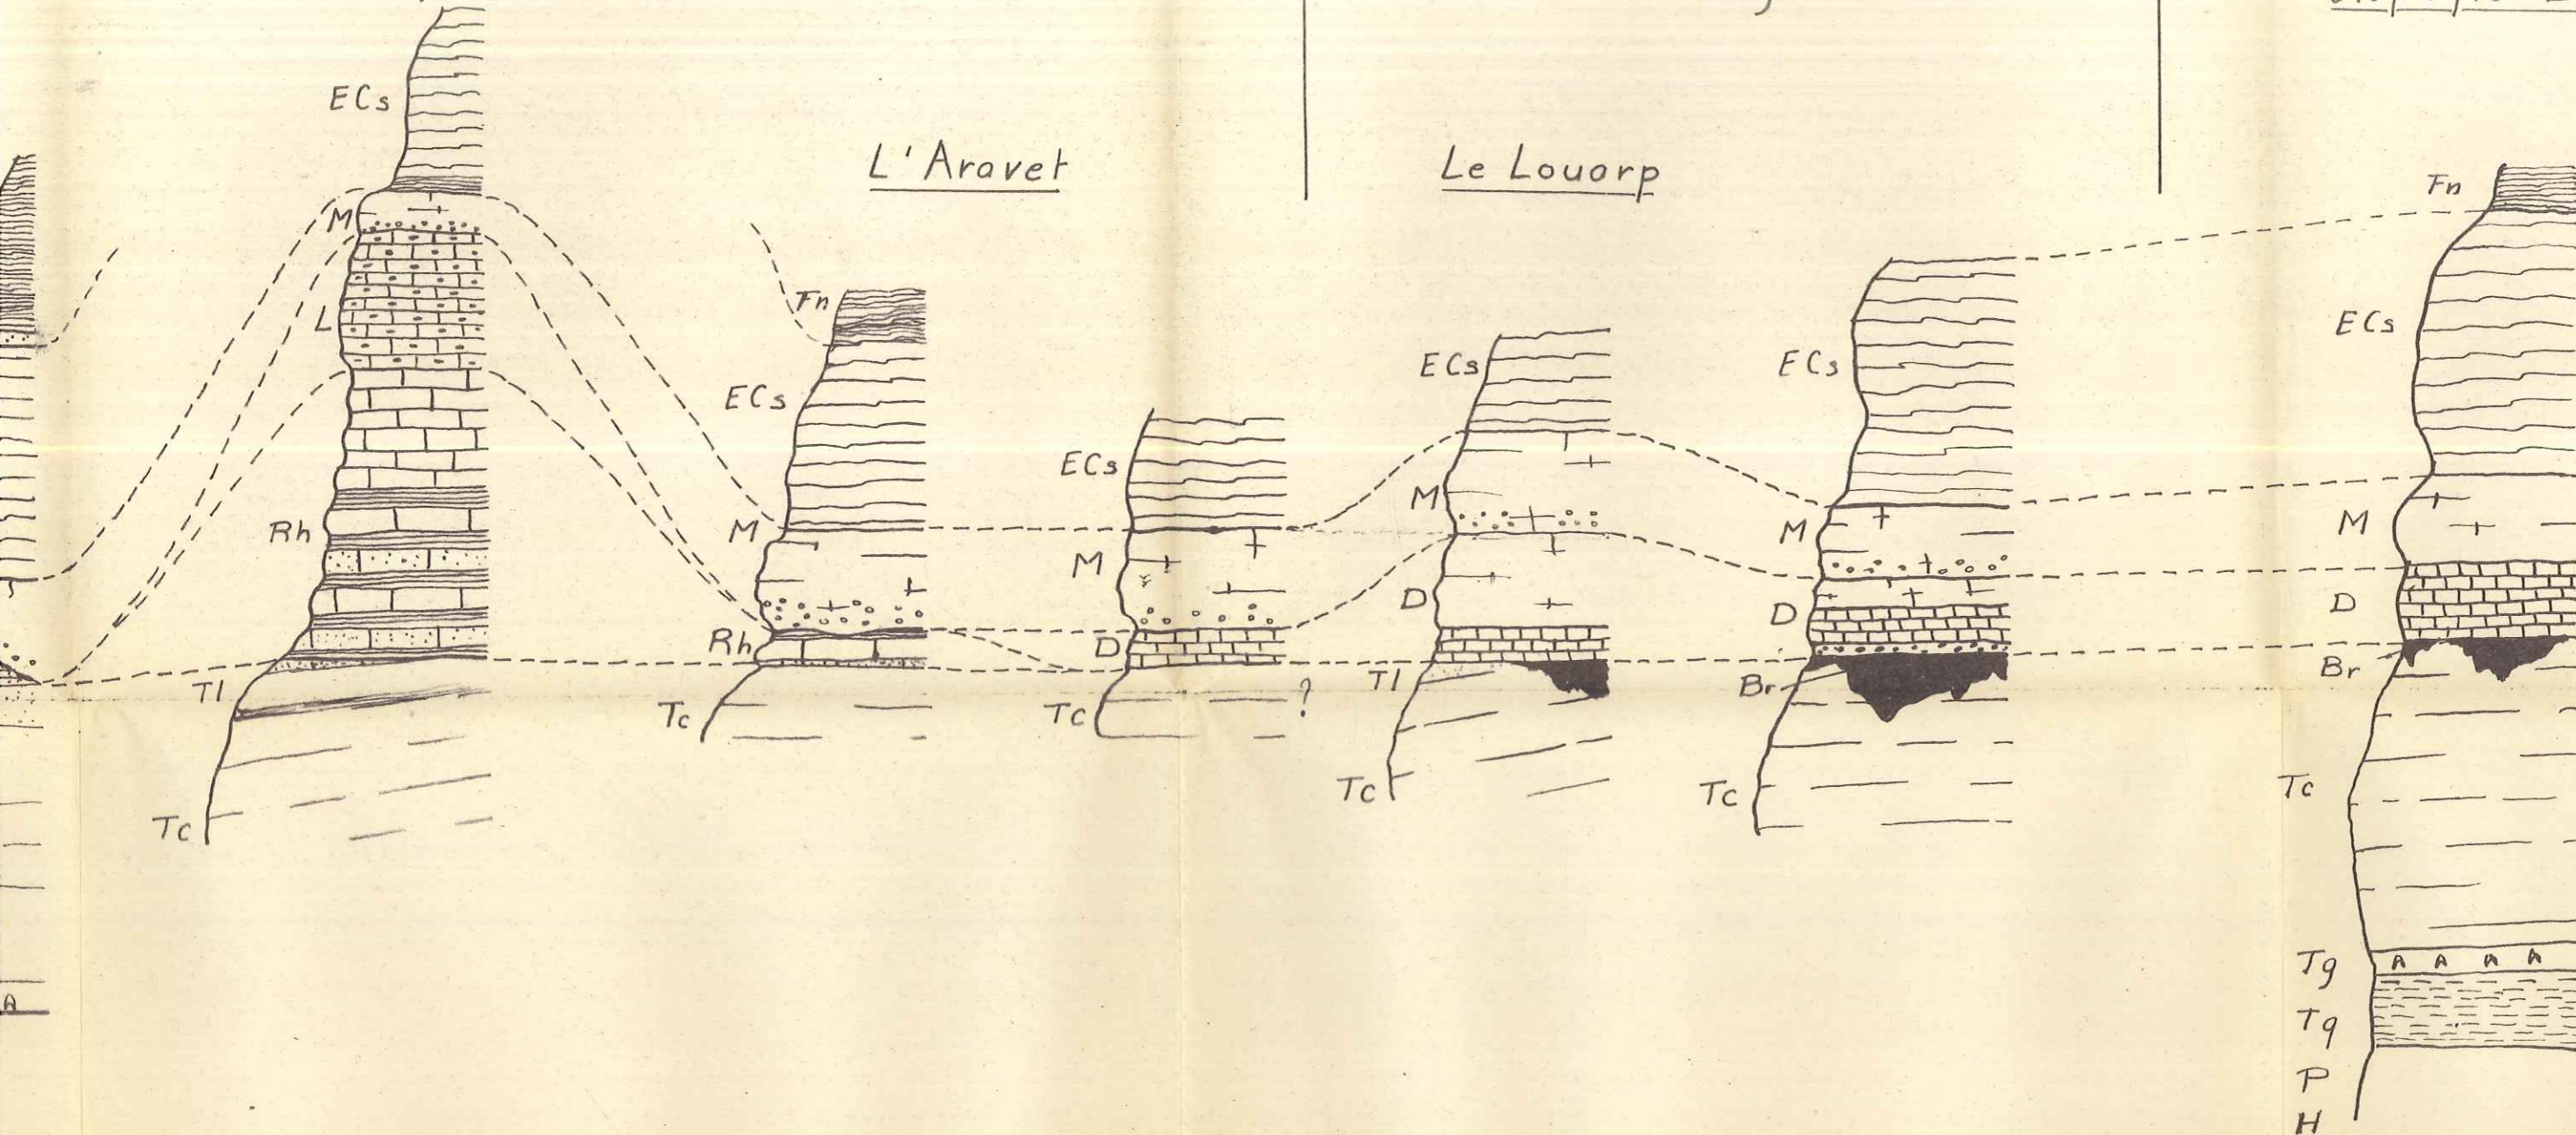 L'Aravet
Le Louorp
ECs
M
L
Rh
Tl
Tc
Fn
ECs
M
Rh
Tc
ECs
M
D
Tc
?
ECs
M
D
Tl
Tc
ECs
M
D
Br
Tc
Fn
ECs
M
D
Br
Tc
Tg
A A A A
Tq
P
H
A